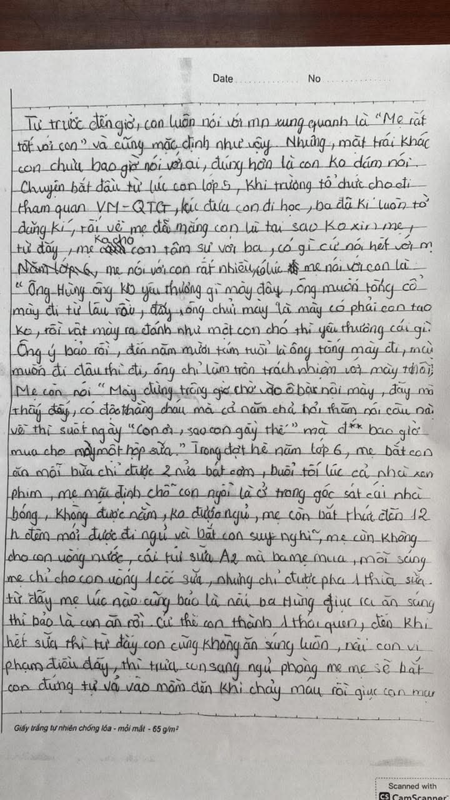 Date No
Từ trước đến giờ, con luôn nói với mn xung quanh là "Mẹ rất
tốt với con" và cũng mặc định như vậy. Nhưng, mặt trái khác
con chưa bao giờ nói với ai, đúng hơn là con ko dám nói.
Chuyện bắt đầu từ lúc con lớp 5, khi trường tổ chức cho đi
tham quan VM-QTG, lúc đưa con đi học, ba đã kí luôn tờ
đăng kí, rồi về mẹ đã mắng con là tại sao ko xin mẹ,
từ đấy, mẹ ko cho con tâm sự với ba, có gì cứ nói hết với m
Năm lớp 6, mẹ nói với con rất nhiều, có lúc mẹ nói với con là
"Ông Hùng ông ko yêu thương gì mày đâu, ông muốn tống cổ
mày đi từ lâu rồi, đấy, ông chửi mày là mày có phải con tao
ko, rồi vặt mày ra đánh như một con chó thì yêu thương cái gì.
Ông ý bảo rồi, đến năm mười tám tuổi là ông tống mày đi, mày
muốn đi đâu thì đi, ông chỉ làm tròn trách nhiệm với mày thôi",
Mẹ còn nói "Mày đừng trông giờ chờ vào ô bà nội mày, đấy mà
thấy đấy, có đứa tháng cháu mà cả năm chả hỏi thăm nói câu nào
về thì suốt ngày "con ơi, sao con gầy thế" mà đ** bao giờ
mua cho mày một hộp sữa." Trong đợt hè năm lớp 6, mẹ bắt con
ăn mỗi bữa chỉ được 2 nửa bát cơm, buổi tối lúc cả nhà xem
phim, mẹ mặc định chỗ con ngồi là ở trong góc sát cái nhà
bóng, không được nằm, ko được ngủ, mẹ còn bắt thức đến 12
h đêm mới được đi ngủ và bắt con suy nghĩ, mẹ còn không
cho con uống nước, cái túi sữa A2 mà ba mẹ mua, mỗi sáng
mẹ chỉ cho con uống 1 cốc sữa, nhưng chỉ được pha 1 thìa sữa.
từ đấy mẹ lúc nào cũng bảo là nếu ba Hùng giục ra ăn sáng
thì bảo là con ăn rồi. Cứ thế con thành 1 thói quen, đến khi
hết sữa thì từ đấy con cũng không ăn sáng luôn, nếu con vi
phạm điều đấy, thì trưa con sang ngủ phòng mẹ mẹ sẽ bắt
con đứng tự vả vào mồm đến khi chảy máu rồi giục con mau
Giấy trắng tự nhiên chống lóa - mỏi mắt - 65 g/m²
Scanned with
CS CamScanner